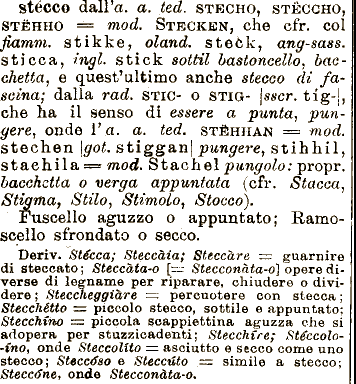 stécco dall'a. a. ted. STECHO, STËCCHO,
STËHHO = mod. STECKEN, che cfr. col
fiamm. stikke, oland. steck, ang-sass.
sticca, ingl. stick sottil bastoncello, bac-
chetta, e quest'ultimo anche stecco di fa-
scina; dalla rad. STIC- o STIG- |sscr. tig-|,
che ha il senso di essere a punta, pun-
gere, onde l'a. a. ted. STËHHAN = mod.
stechen |got. stiggan| pungere, stihhil,
stachila = mod. Stachel pungolo: propr.
bacchetta o verga appuntata (cfr. Stacca,
Stigma, Stilo, Stimolo, Stocco).
Fuscello aguzzo o appuntato; Ramo-
scello sfrondato o secco.
Deriv. Stécca; Steccàia; Steccàre = guarnire
di steccato; Steccàta-o [= Stecconàta-o] opere di-
verse di legname per riparare, chiudere o divi-
dere; Steccheggiàre = percuotere con stecca;
Stecchétto = piccolo stecco, sottile e appuntato;
Stecchíno = piccola scappiettina aguzza che si
adopera per stuzzicadenti; Stecchíre; Stéccolo-
-íno, onde Steccolíto = asciutto e secco come uno
stecco; Steccóso e Steccúto = simile a stecco;
Steccóne, onde Stecconàta-o.